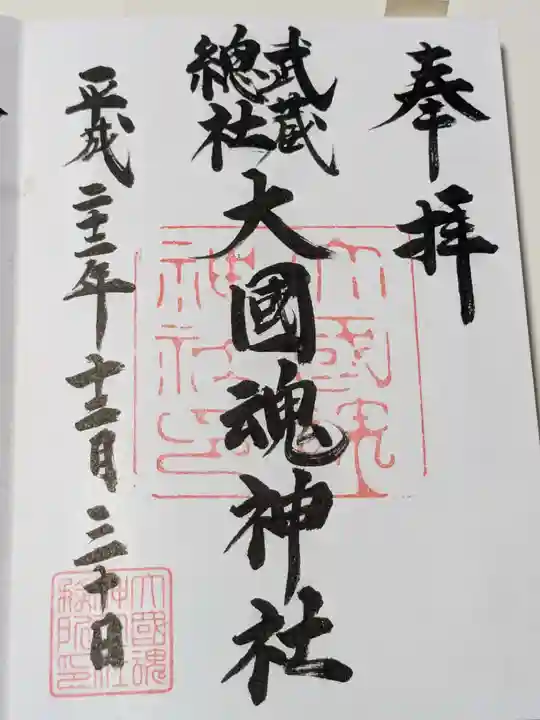 奉拝
武蔵
總社
大國魂神社
平成二十二年十二月三十日
大國魂
神社印
大國魂
神社